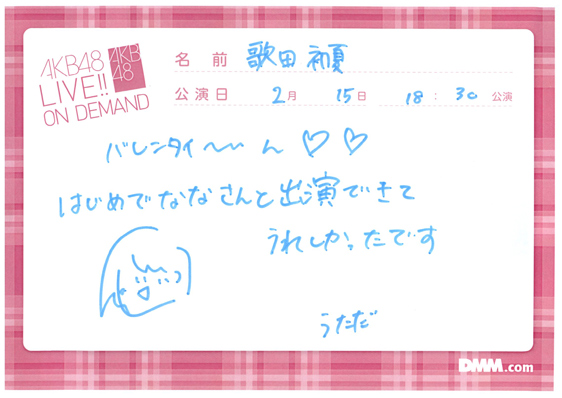 AKB48
LIVE!!
ON DEMAND
AKB
48
名前 歌田 初夏
公演日 2月 15日 18:30 公演
バレンタイ〜〜ん♡♡
はじめでななさんと出演できて
うれしかったです
うただ
DMM.com